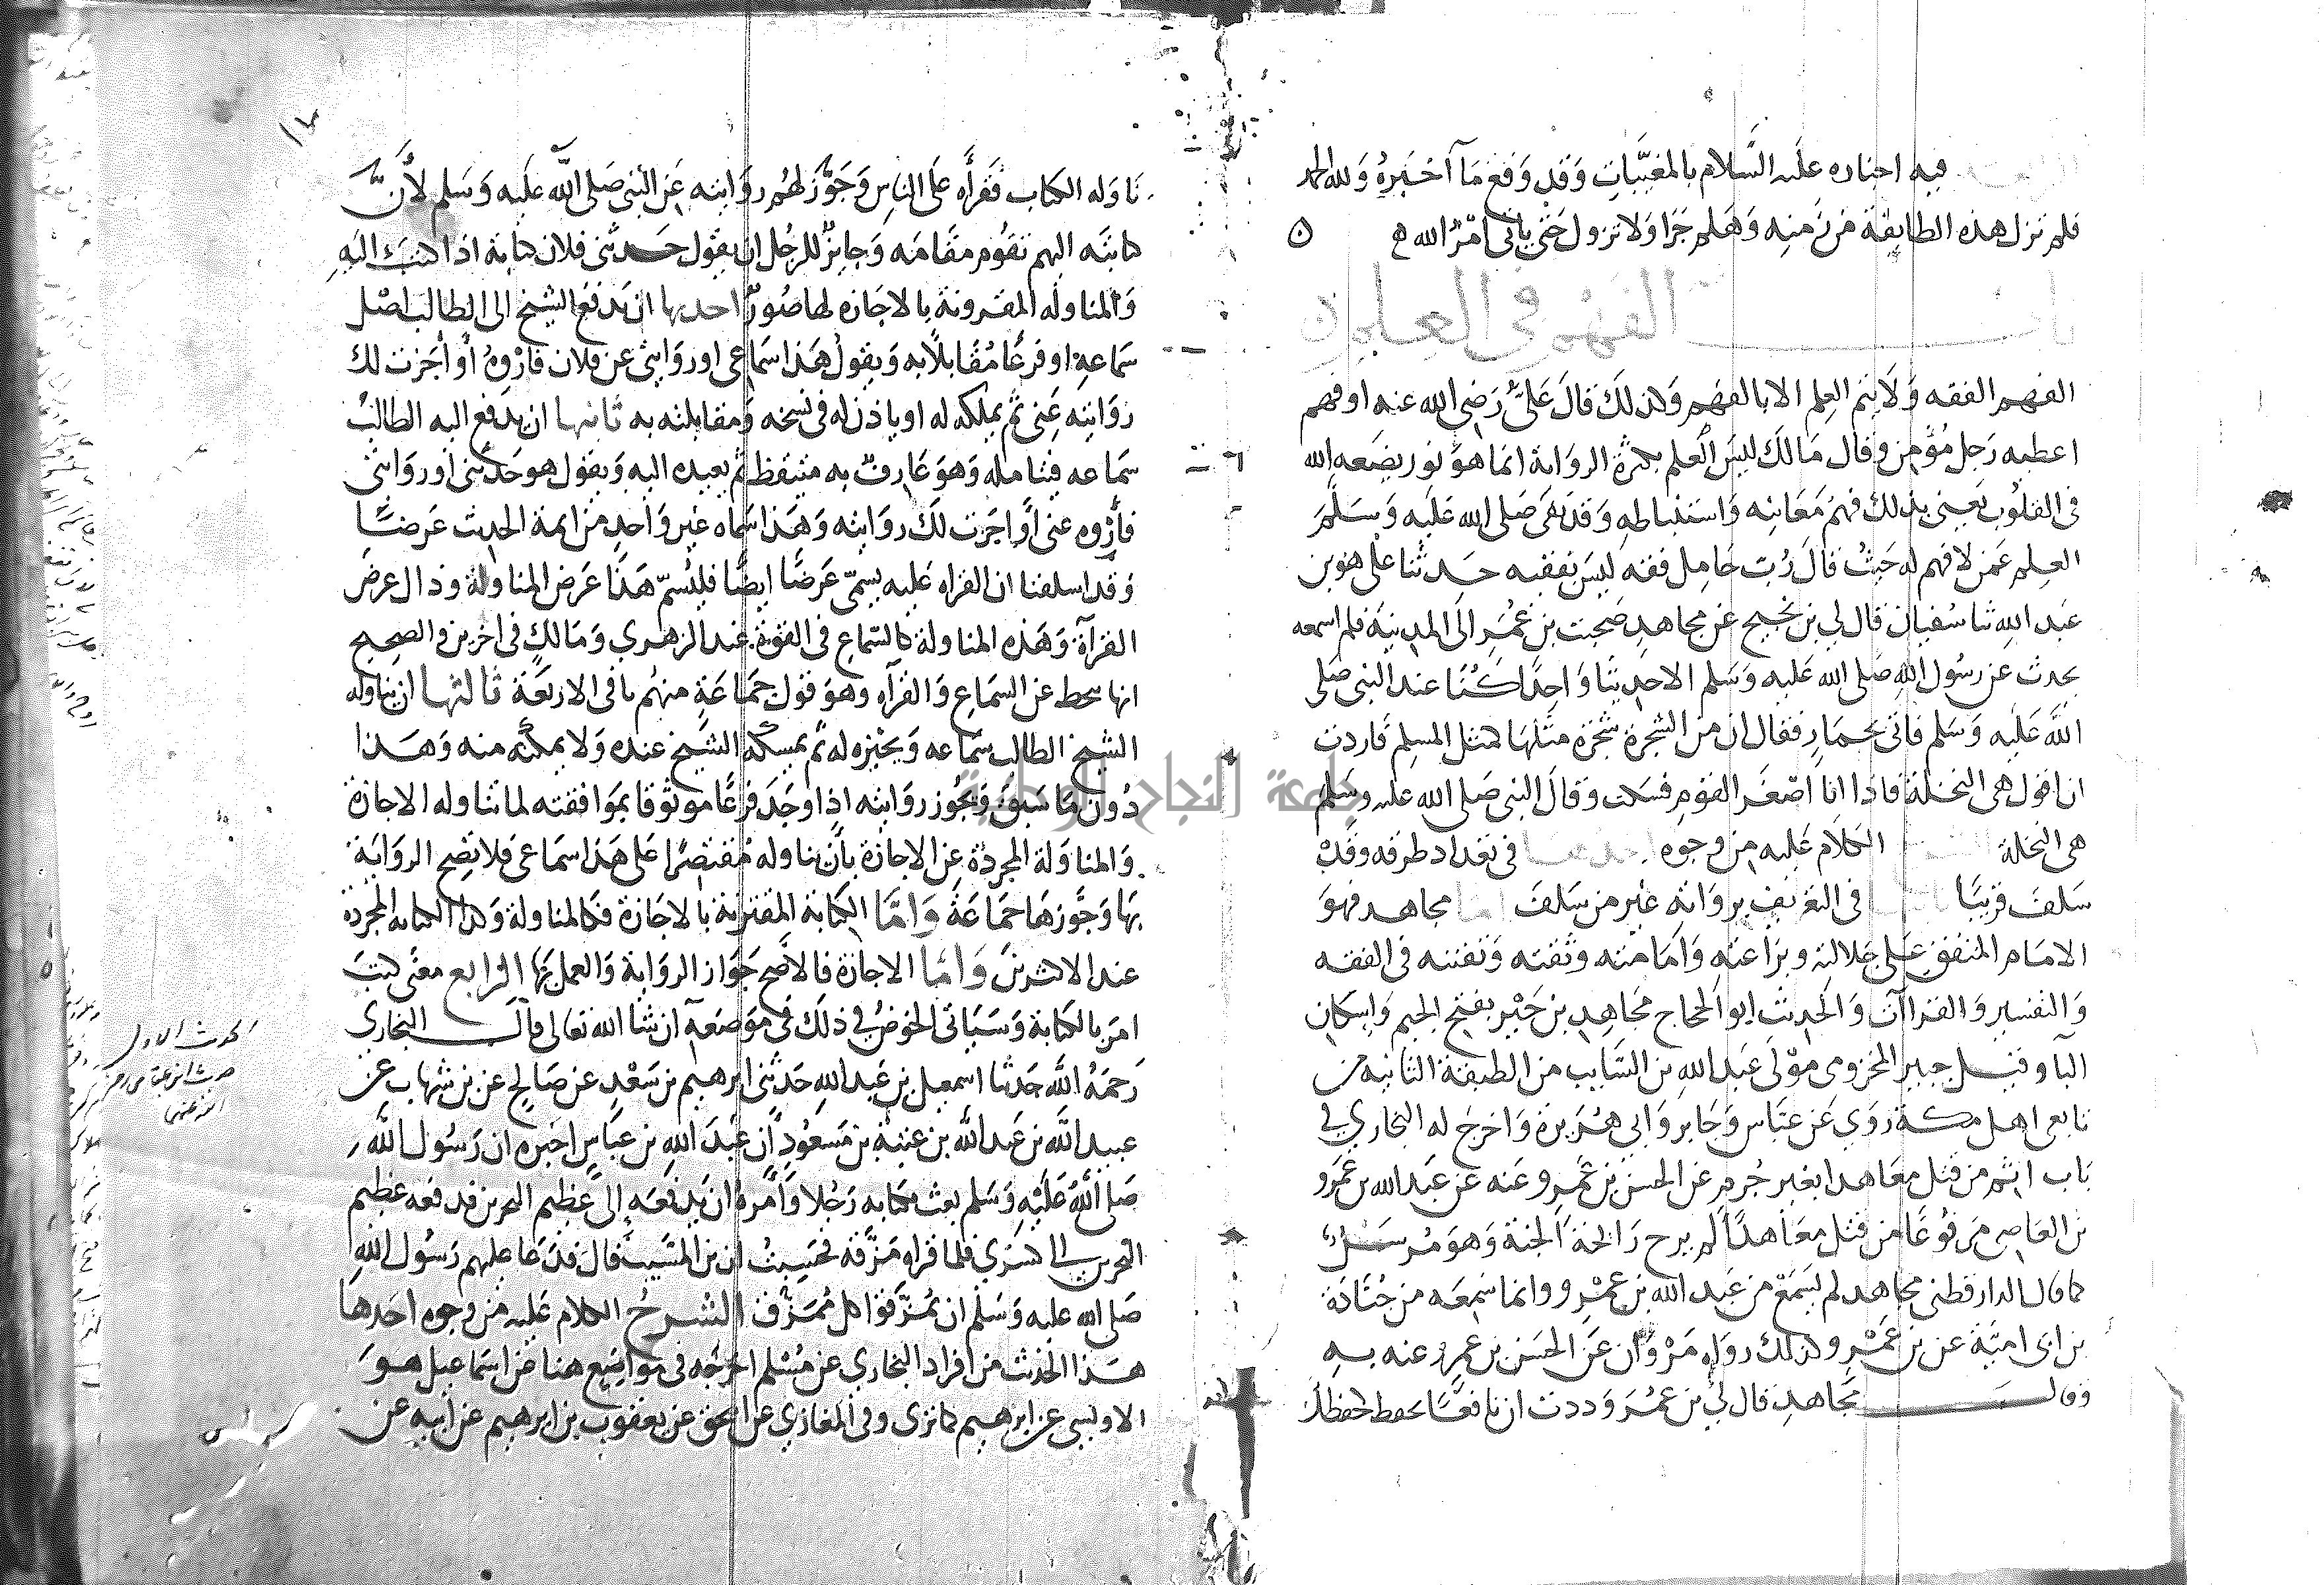 فيه اخباره عليه السلام بالمغيبات وقد وقع ما آخبر به ولله الحمد
فلم تزل هذه الطايفة من زمنه وهلم جرا ولا تزول حتى ياتي امر الله
باب الفهم في العلم
الفهم الفقه ولا يتم العلم الا بالفهم وكذلك قال علي رضي الله عنه او فهم
اعطيه رجل مؤمن وقال مالك ليس العلم بكثرة الرواية انما هو نور يضعه الله
في القلوب يعني بذلك فهم معانيه واستنباطه وقد نفى صلى الله عليه وسلم
العلم عمن لا فهم له حيث قال رب حامل فقه ليس بفقيه حدثنا علي هو بن
عبد الله ثنا سفيان قال لي بن نجيح عن مجاهد صحبت بن عمر الى المدينة فلم اسمعه
يحدث عن رسول الله صلى الله عليه وسلم الا حديثا واحدا كنا عند النبي صلى
الله عليه وسلم فاتي بجمار فقال ان من الشجرة شجرة مثلها كمثل المسلم فاردت
ان اقول هي النخلة فاذا انا اصغر القوم فسكت وقال النبي صلى الله عليه وسلم
هي النخلة الكلام عليه من وجوه احدها في تعداد طرقه وقد
سلف قريبا في التعريف برواته غير من سلف اما مجاهد فهو
الامام المتفق على جلالته وبراعته وامامته وثقته وتفننه في الفقه
والتفسير والقراآت والحديث ابو الحجاج مجاهد بن جبر بفتح الجيم واسكان
البا وقيل جبير المخزومي مولى عبد الله بن السايب من الطبقة الثانية من
تابعي اهل مكة روى عن عباس وجابر وابي هريرة واخرج له البخاري في
باب اثم من قتل معاهدا بغير جرم عن الحسن بن عمرو عنه عن عبد الله بن عمرو
بن العاصي مرفوعا من قتل معاهدا لم يرح رائحة الجنة وهو مرسل
كما قال الدارقطني مجاهد لم يسمع من عبد الله بن عمرو وانما سمعه من جنادة
بن ابي امية عن بن عمرو وكذلك رواه مروان عن الحسن بن عمرو عنه به
وقال مجاهد قال لي بن عمر وددت ان نافعا يحفظ كحفظك
ناوله الكتاب فقرأه على الناس وجوز لهم روايته عن النبي صلى الله عليه وسلم لأن
كتابته اليهم تقوم مقامه وجايز للرجل ان يقول حدثني فلان كتابة اذا كتب اليه
والمناولة المقرونة بالاجازه لها صور احديها ان يدفع الشيخ الى الطالب اصل
سماعه او فرعا مقابلا به ويقول هذا سماعي او روايتي عن فلان فاروه أو أجزت لك
روايته عني ثم يملكه له او ياذن له في نسخه ومقابلته به ثانيها ان يدفع اليه الطالب
سماعه فيتامله وهو عارف به متيقظ ثم يعيده اليه ويقول هو حديثي او روايتي
فأروه عني او اجزت لك روايته وهذا سماه غير واحد من ايمة الحديث عرضا
وقد اسلفنا ان القراه عليه يسمى عرضا ايضا فليسم هذا عرض المناولة وذال عرض
القرآة وهذه المناولة كالسماع في القوة عند الزهري ومالك في اخرين والصحيح
انها تحط عن السماع والقرآه وهو قول جماعة منهم باقي الاربعة ثالثها ان يناوله
الشيخ الطالب سماعه ويجيزه له ثم يمسكه الشيخ عنده ولا يمكنه منه وهذا
دون ما سبق وتجوز روايته اذا وجد فرعا موثوقا بموافقته لما تناوله الاجازة
والمناولة المجردة عن الاجازة بأن يناوله مقتصرا على هذا سماعي فلا تصح الرواية
بها وجوزها جماعة واما الكتابة المقترنة بالاجازة فكالمناولة وكذا الكتابه المجردة
عند الاكثرين واما الاجازة فالاصح جواز الرواية والعمل بها الرابع معنى كتب
امر بالكتابة وسياتي الخوض في ذلك في موضعه ان شا الله تعالى قال البخاري
رحمه الله حدثنا اسمعيل بن عبد الله حدثني ابرهيم بن سعد عن صالح عن بن شهاب عن
عبيد الله بن عبد الله بن عتبة بن مسعود ان عبد الله بن عباس اخبره ان رسول الله
صلى الله عليه وسلم بعث بكتابه رجلا وأمره ان يدفعه إلى عظيم البحرين فدفعه عظيم
البحرين الى كسرى فلما قراه مزقه فحسبت ان بن المسيب قال فدعا عليهم رسول الله
صلى الله عليه وسلم ان يمزقوا كل ممزق الشرح الكلام عليه من وجوه احدها
هذا الحديث من افراد البخاري عن مسلم اخرجه في مواضع هنا عن اسماعيل هو
الاويسي عن ابرهيم كما ترى وفي المغازي عن اسحق عن يعقوب بن ابرهيم عن ابيه عن
الحديث الاول
حديث ابن عباس رضي
الله عنهما
جامعة النجاح الوطنية